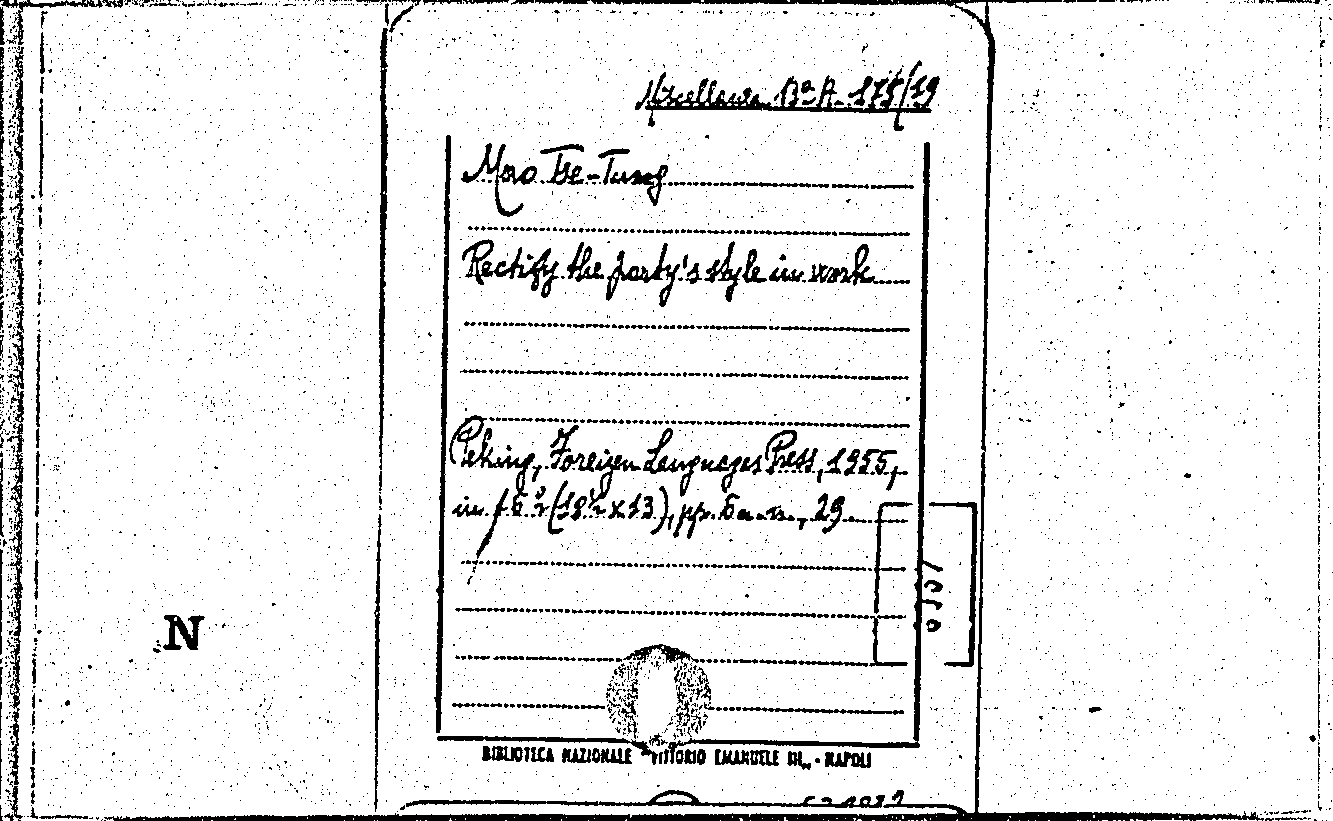 Miscellanea Bª A. 175/19
Mao Tse-Tung
Rectify the party's style in work
Peking, Foreigen Languages Press, 1955,
in 16° (18½ x 13), pp. 6 n.n., 29
N
BIBLIOTECA NAZIONALE "VITTORIO EMANUELE III„ - NAPOLI